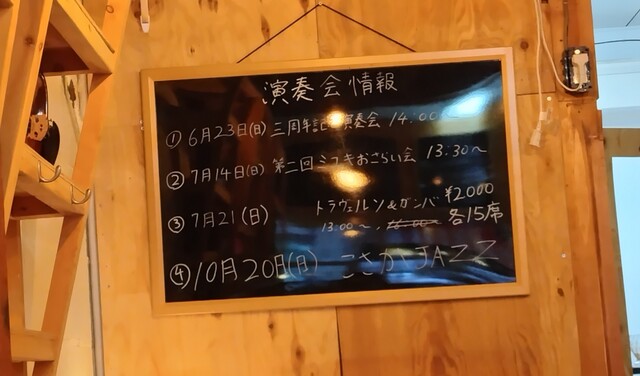 演奏会情報
① 6月23日(日) 三周年記念演奏会 14:00~
② 7月14日(日) 第二回ミユキおさらい会 13:30~
③ 7月21(日) トラヴェルソ&ガンバ ¥2000
13:00~, 16:00~ 各15席
④ 10月20日(日) こさかJAZZ